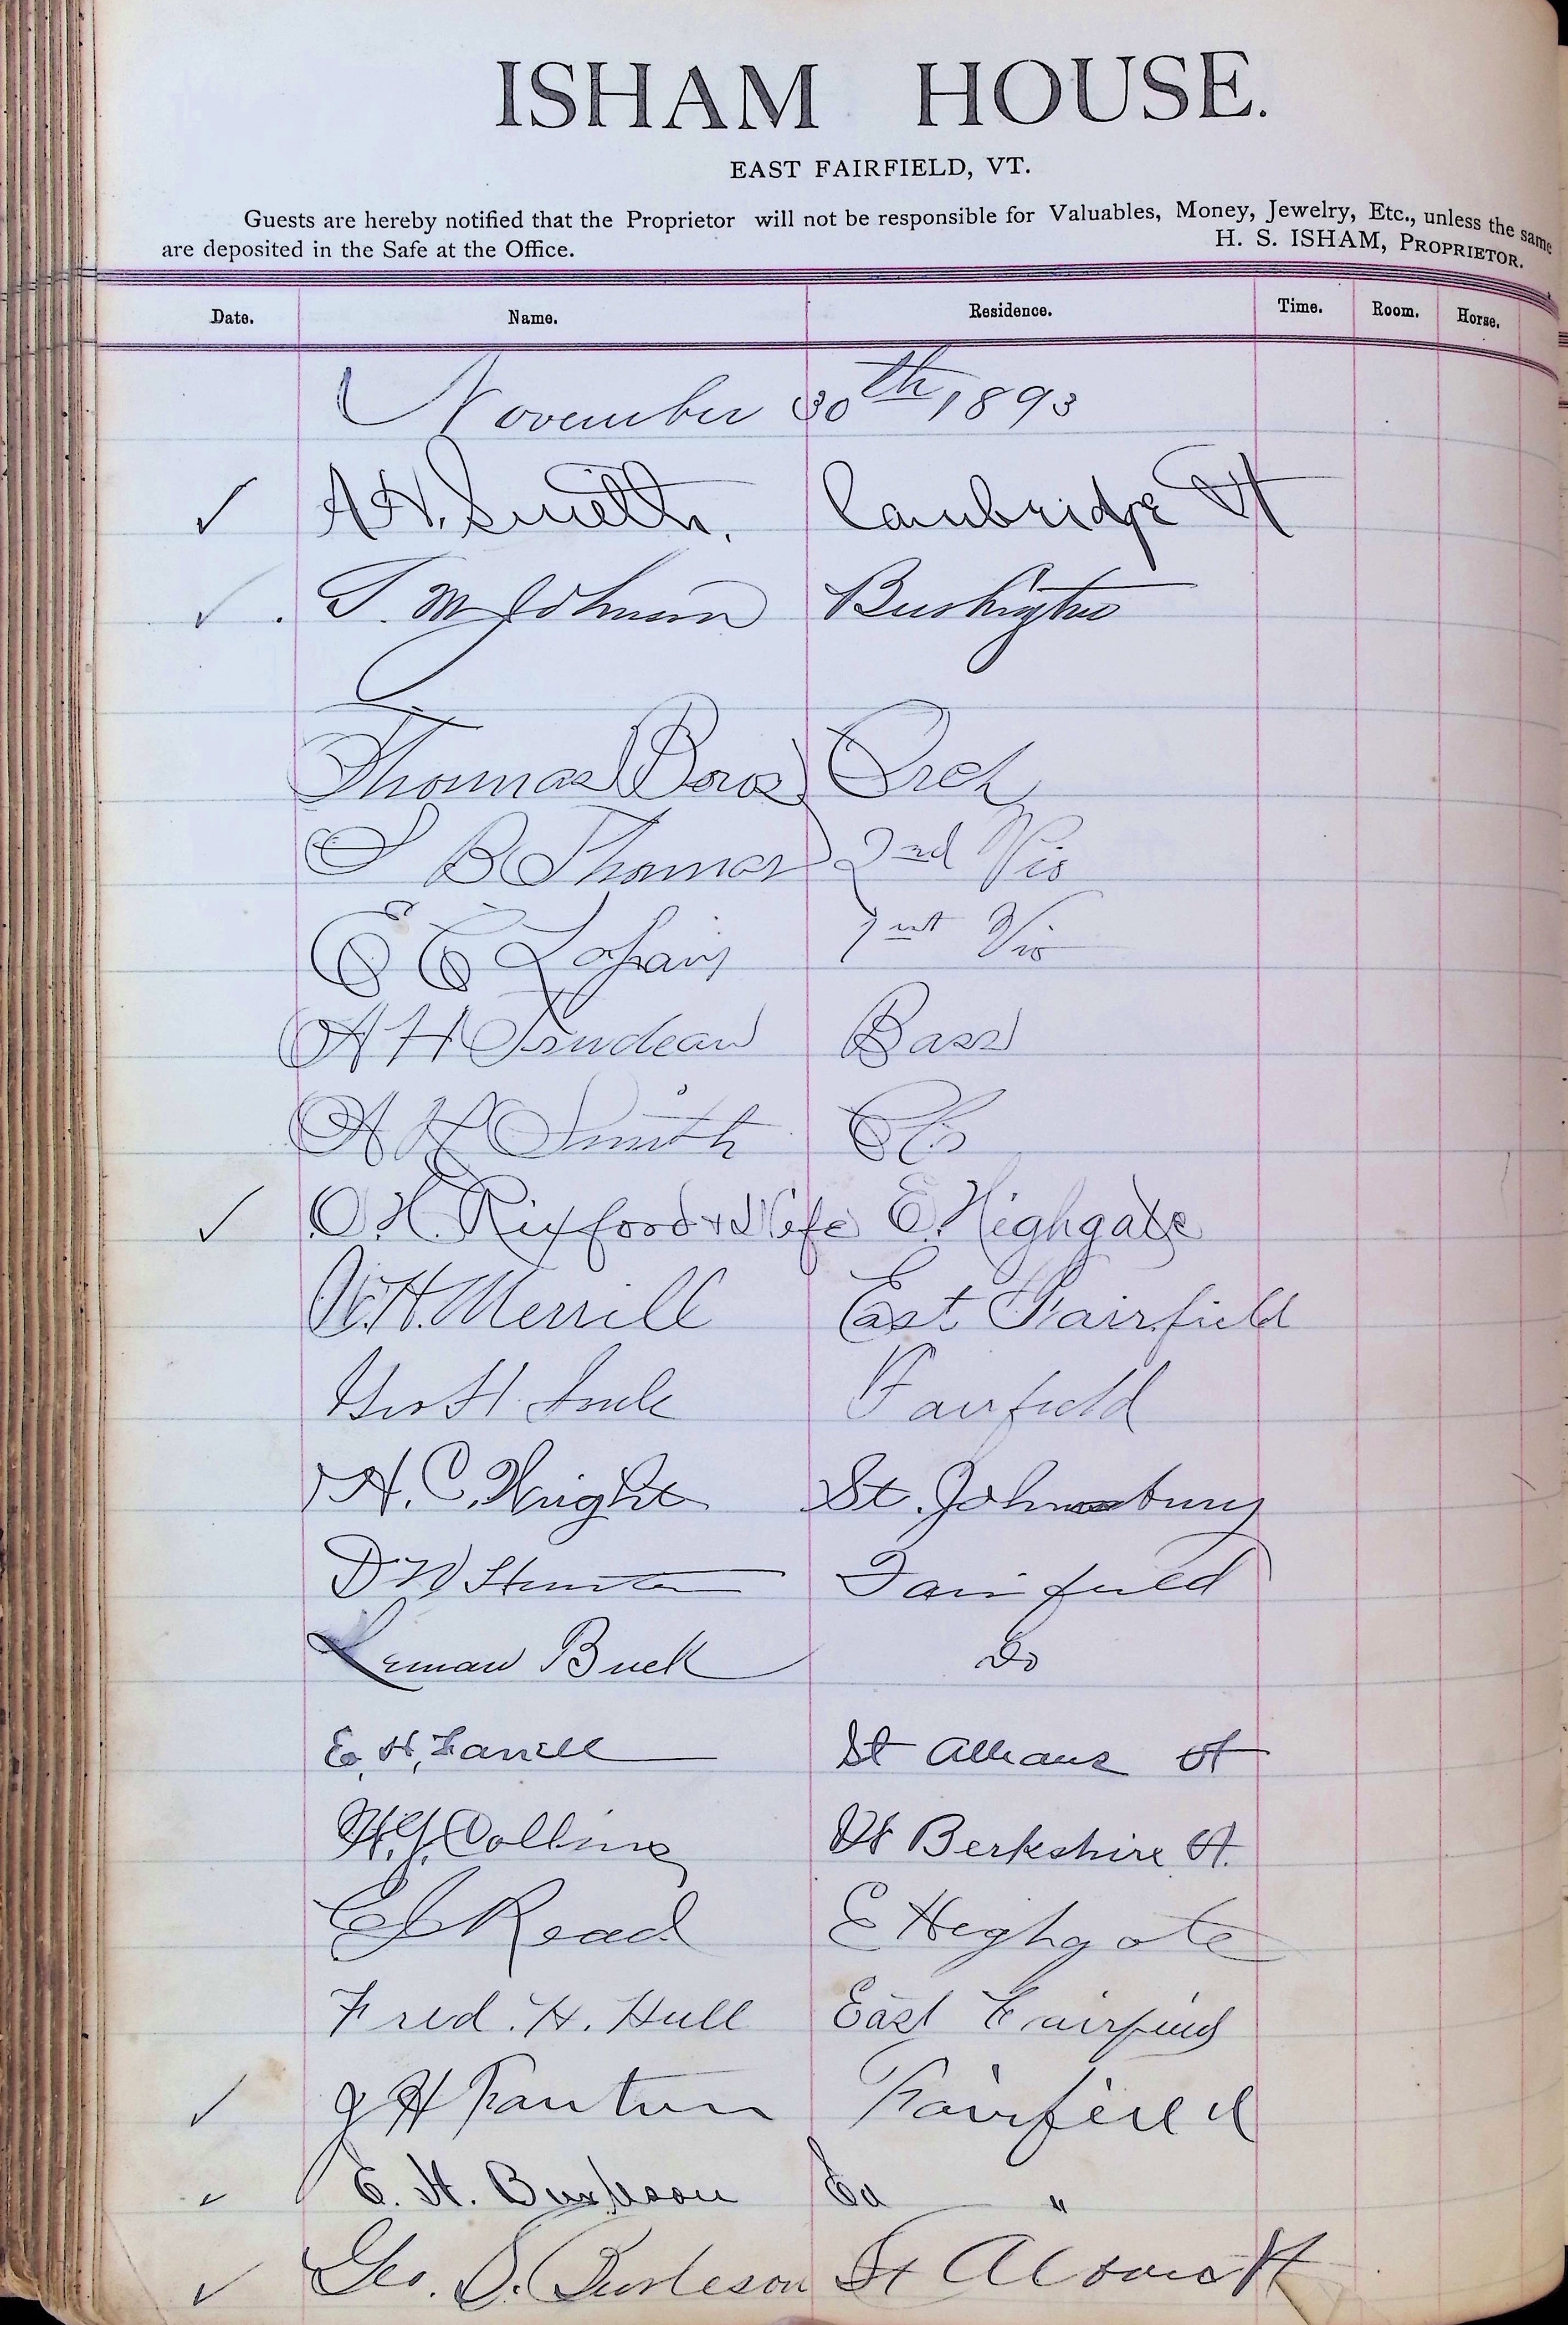 ISHAM HOUSE.
EAST FAIRFIELD, VT.
Guests are hereby notified that the Proprietor will not be responsible for Valuables, Money, Jewelry, Etc., unless the same
are deposited in the Safe at the Office. H. S. ISHAM, PROPRIETOR.
Date. Name. Residence. Time. Room. Horse.
November 30th, 1893
✓ A H. Smith. Cambridge Vt
✓ T. M Johnson Burlington
Thomas Bros Orch
S B Thomas 2nd Vio
E E 1st Vio
A H Trudeau Bass
A H Smith
✓ O. H. Rixford & Wife E. Highgate
H. Merrill East Fairfield
Geo H. Soule Fairfield
H. C. Wright St. Johnsbury
D W Fairfield
Leman Buck Do
E. H. Farrell St Albans Vt
H. J. Collins Wt Berkshire Vt.
E J Read E Highgate
Fred. H. Hull East Fairfield
✓ J H Fanton Fairfield
✓ E. H. Burleson Ea "
✓ Geo. S. Burleson St Albans Vt